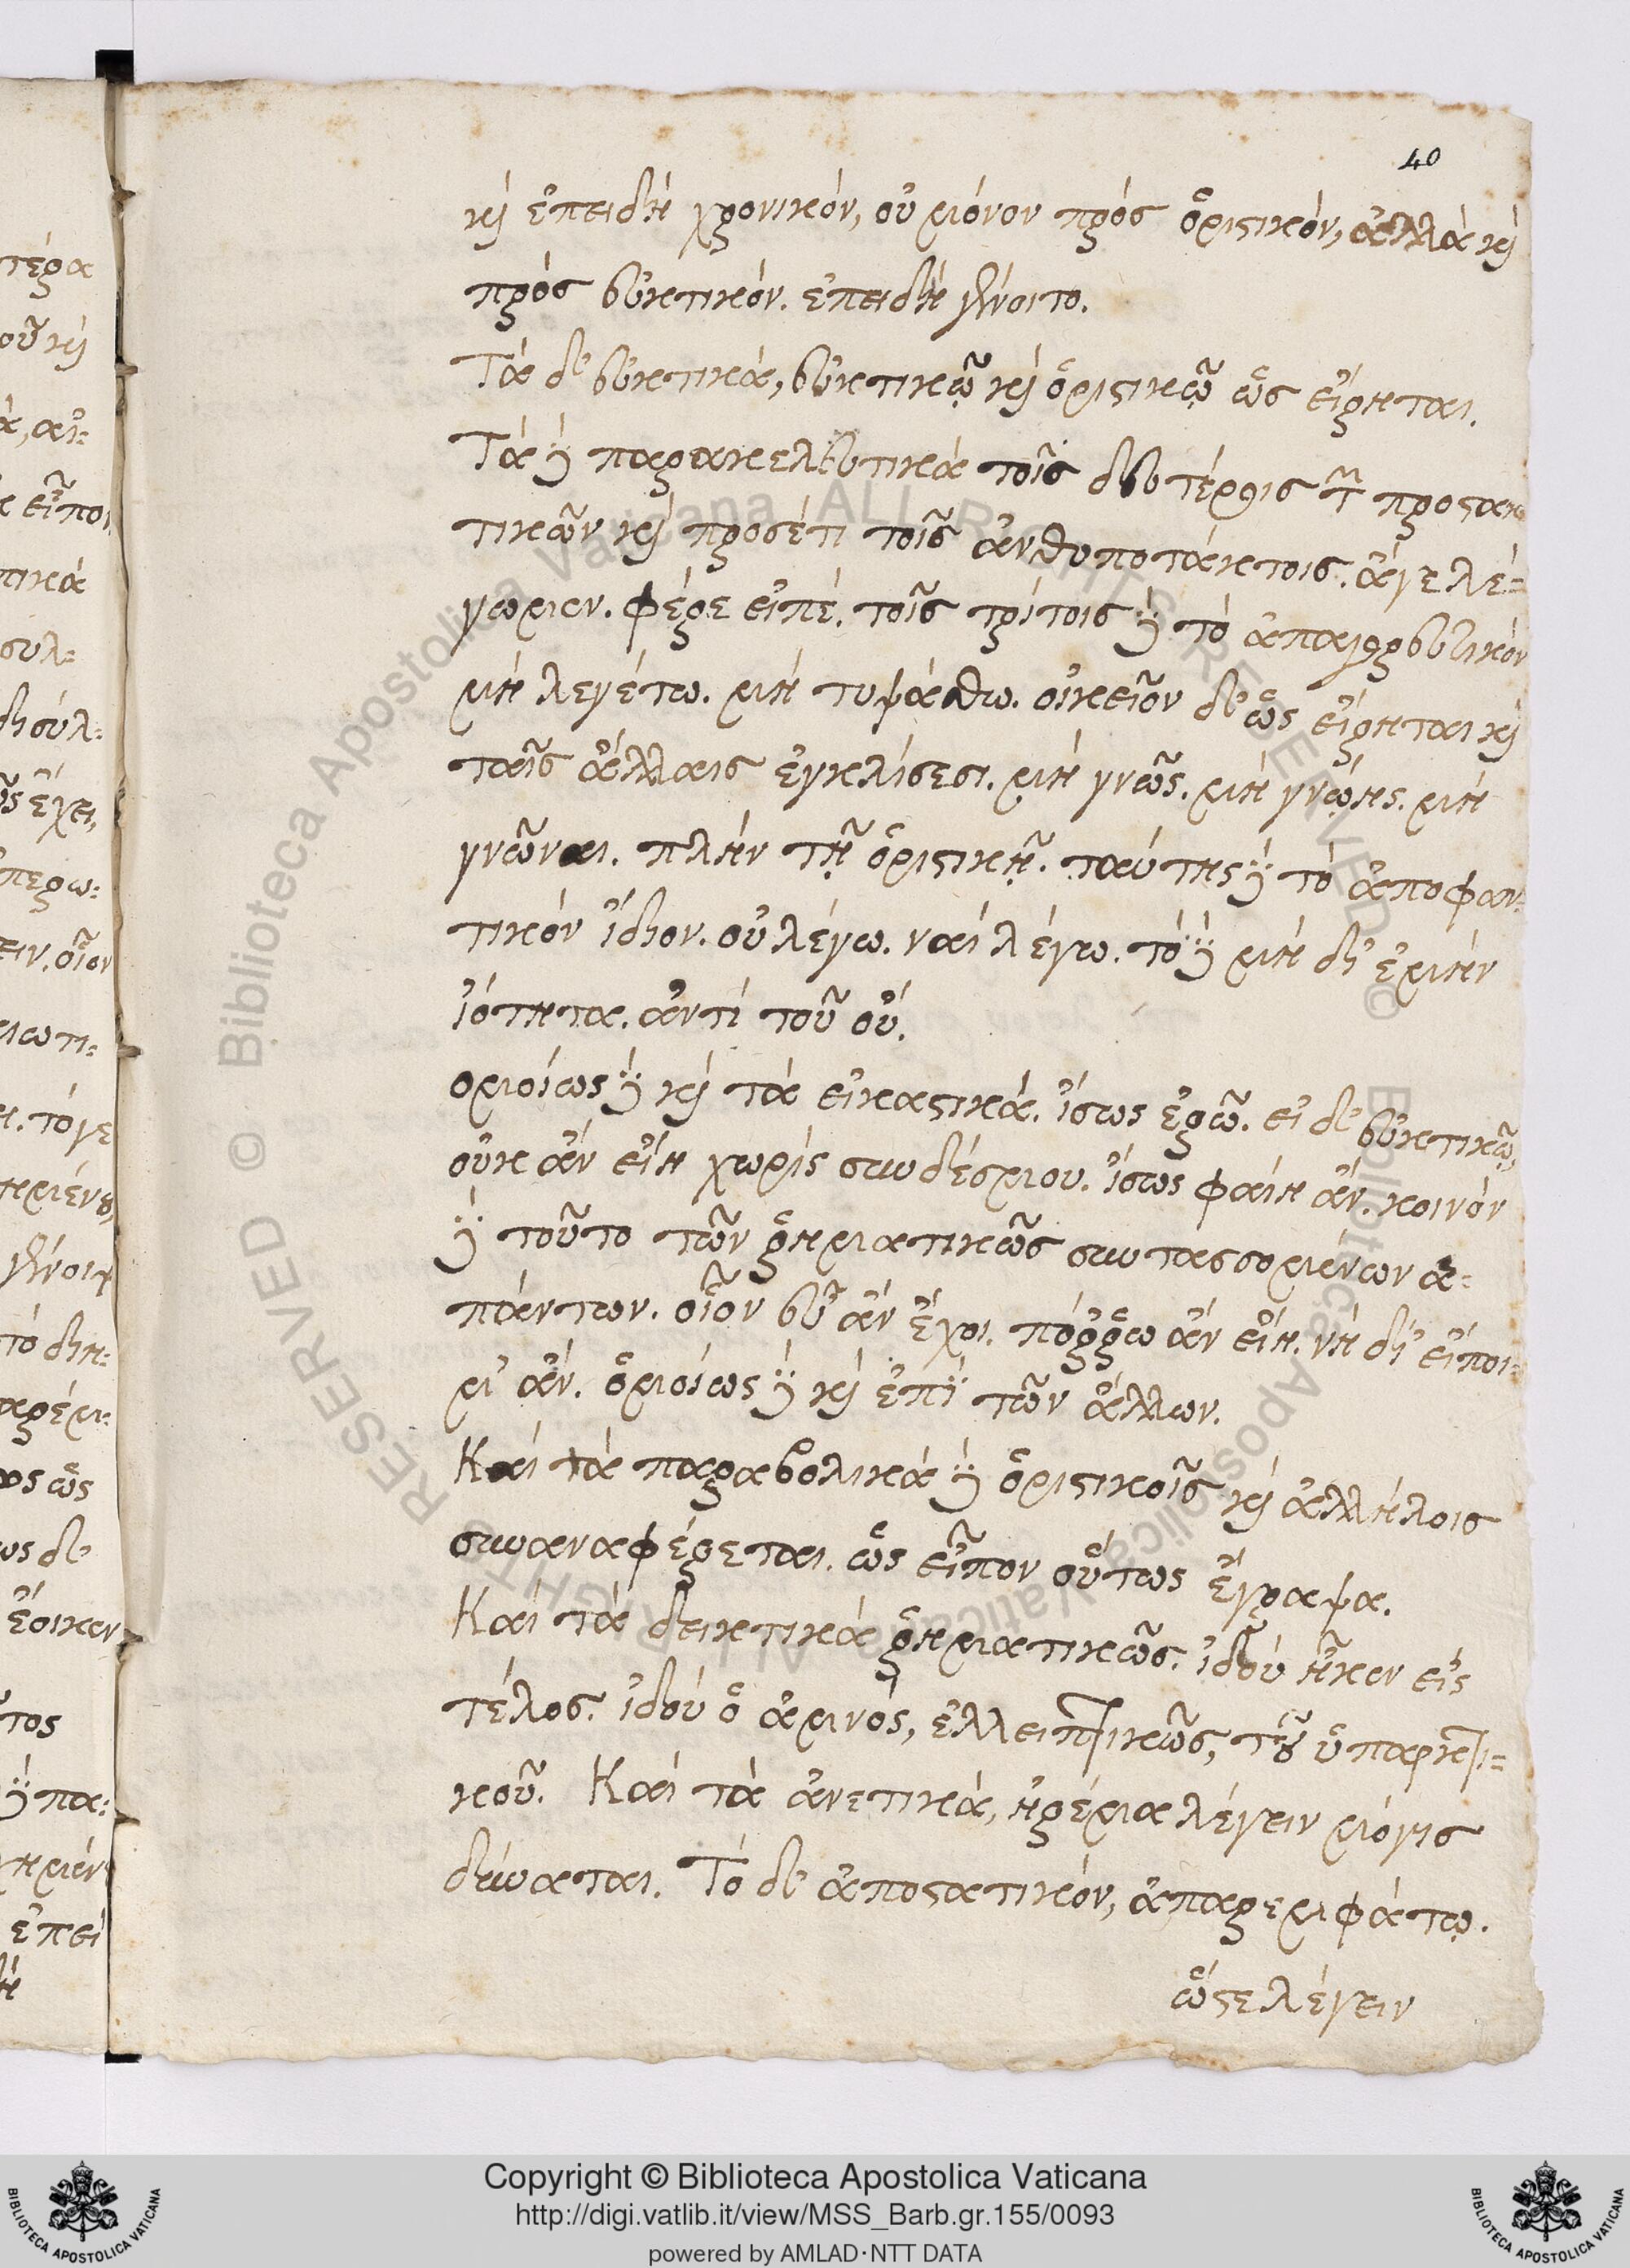 40
καὶ ἐπειδὴ χρονικόν, οὐ μόνον πρὸς ὁριστικόν, ἀλλὰ καὶ
πρὸς εὐκτικόν. ἐπειδὴ γένοιτο.
Τὰ δ' εὐκτικά, εὐκτικῷ καὶ ὁριστικῷ ὡς εἴρηται.
Τὰ δὲ παρακελευτικὰ τοῖς δευτέροις τῶν προστακ
τικῶν καὶ προσέτι τοῖς ἀνθυποτάκτοις. ἄγε λέ=
γωμεν. φέρε εἰπέ. τοῖς τρίτοις δὲ τὸ ἀπαγορευτικόν
μὴ λεγέτω. μὴ τυψάσθω. οἰκεῖον δ' ὡς εἴρηται καὶ
ταῖς ἄλλαις ἐγκλίσεσι. μὴ γνῶς. μὴ γνῴης. μὴ
γνῶναι. πλὴν τῇ ὁριστικῇ. ταύτης δὲ τὸ ἀποφαν=
τικὸν ἴδιον. οὐ λέγω. ναὶ λέγω. τὸ δὲ μὴ δι' ἐμὴν
ἰότητα. ἀντὶ τοῦ οὐ.
ομοίως δὲ καὶ τὰ εἰκαστικά. ἴσως ἐρῶ. εἰ δ' εὐκτικῷ,
οὐκ ἂν εἴη χωρὶς συνδέσμου. ἴσως φαίη ἄν. κοινὸν
δὲ τοῦτο τῶν ῥηματικῶς συντασσομένων ἁ=
πάντων. οἷον εὖ ἂν ἔχοι. πόῤῥω ἂν εἴη. νὴ δί' εἴποι=
μι' ἄν. ὁμοίως δὲ καὶ ἐπὶ τῶν ἄλλων.
Καὶ τὰ παραβολικὰ δὲ ὁριστικοῖς καὶ ἀλλήλοις
συναναφέρεται. ὡς εἶπον οὕτως ἔγραψα.
Καὶ τὰ δεικτικὰ ῥηματικῶς. ἰδοὺ ἧκεν εἰς
τέλος. ἰδοὺ ὁ ἀμνός, ἐλλειπτικῶς, τοῦ ὑπαρκτι=
κοῦ. Καὶ τὰ ἀνετικά, ἠρέμα λέγειν μόγις
δύναται. Τὸ δ' ἀποστατικόν, ἀπαρεμφάτῳ.
ὥστε λέγειν
Copyright © Biblioteca Apostolica Vaticana
http://digi.vatlib.it/view/MSS_Barb.gr.155/0093
powered by AMLAD·NTT DATA